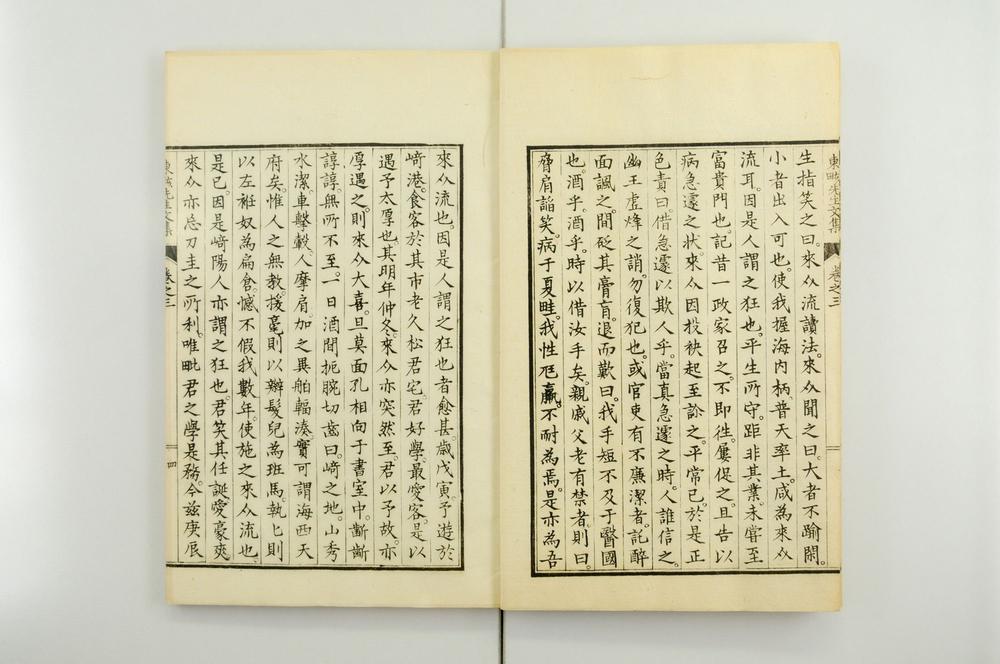 生指笑之曰。來厸流讀法。來厸聞之曰。大者不踰閑。
小者出入可也。使我握海內柄。普天率土。咸為來厸
流耳。因是人謂之狂也。平生所守。距非其業。未嘗至
富貴門也。記昔一政家召之。不即徃。屢促之。且告以
病急遽之狀。來厸因投袂起至診之。平常已。於是正
色責曰。借急遽以欺人乎。當真急遽之時。人誰信之。
幽王虛烽之誚。勿復犯也。或官吏有不廉潔者。託醉
面諷之間。砭其膏肓。退而歎曰。我手短不及于醫國
也。酒乎。酒乎。時以借汝手矣。親戚父老有禁者。則曰。
脅肩諂笑。病于夏畦。我性尫羸。不耐為焉。是亦為吾
東畡先生文集
卷之三
來厸流也。因是人謂之狂也者愈甚。歲戊寅。予遊於
﨑港。食客於其市老久松君宅。君好學。最愛客。是以
遇予太厚也。其明年仲冬。來厸亦突然至。君以予故。亦
厚遇之。則來厸大喜。旦莫面孔相向于書室中。齗齗
諄諄。無所不至。一日酒間扼腕切齒曰。﨑之地。山秀
水潔。車擊轂。人摩肩。加之異舶輻湊。實可謂海西天
府矣。惟人之無教。援毫則以辮髮兒為班馬。執匕則
以左衽奴為扁倉。憾不假我數年。使施之來厸流也。
是已。因是﨑陽人亦謂之狂也。君笑其任誕。愛豪爽。
來厸亦忘刀圭之所利。唯毗君之學是務。今玆庚辰
卷之三
四